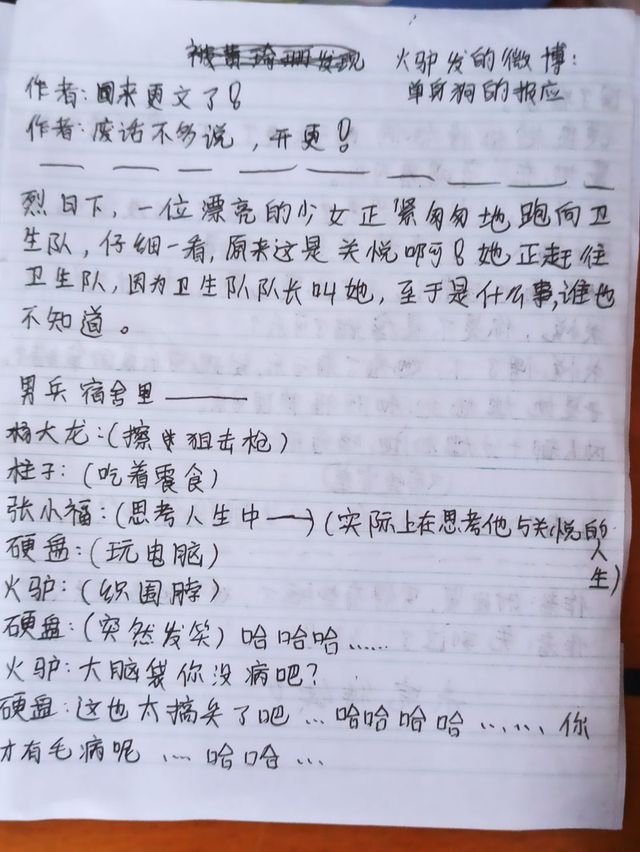 火驴发的微博:
单身狗的报应
作者:回来更文了!
作者:废话不多说,开更!
烈日下,一位漂亮的少女正紧匆匆地跑向卫
生队,仔细一看,原来这是关悦啊!她正赶往
卫生队,因为卫生队队长叫她,至于是什么事,谁也
不知道。
男兵宿舍里——
杨大龙:(擦狙击枪)
柱子:(吃着零食)
张小福:(思考人生中——)(实际上在思考他与关悦的人生)
硬盘:(玩电脑)
火驴:(织围脖)
硬盘:(突然发笑)哈哈哈……
火驴:大脑袋你没病吧?
硬盘:这也太搞笑了吧…哈哈哈哈……,你
才有毛病呢…哈哈…